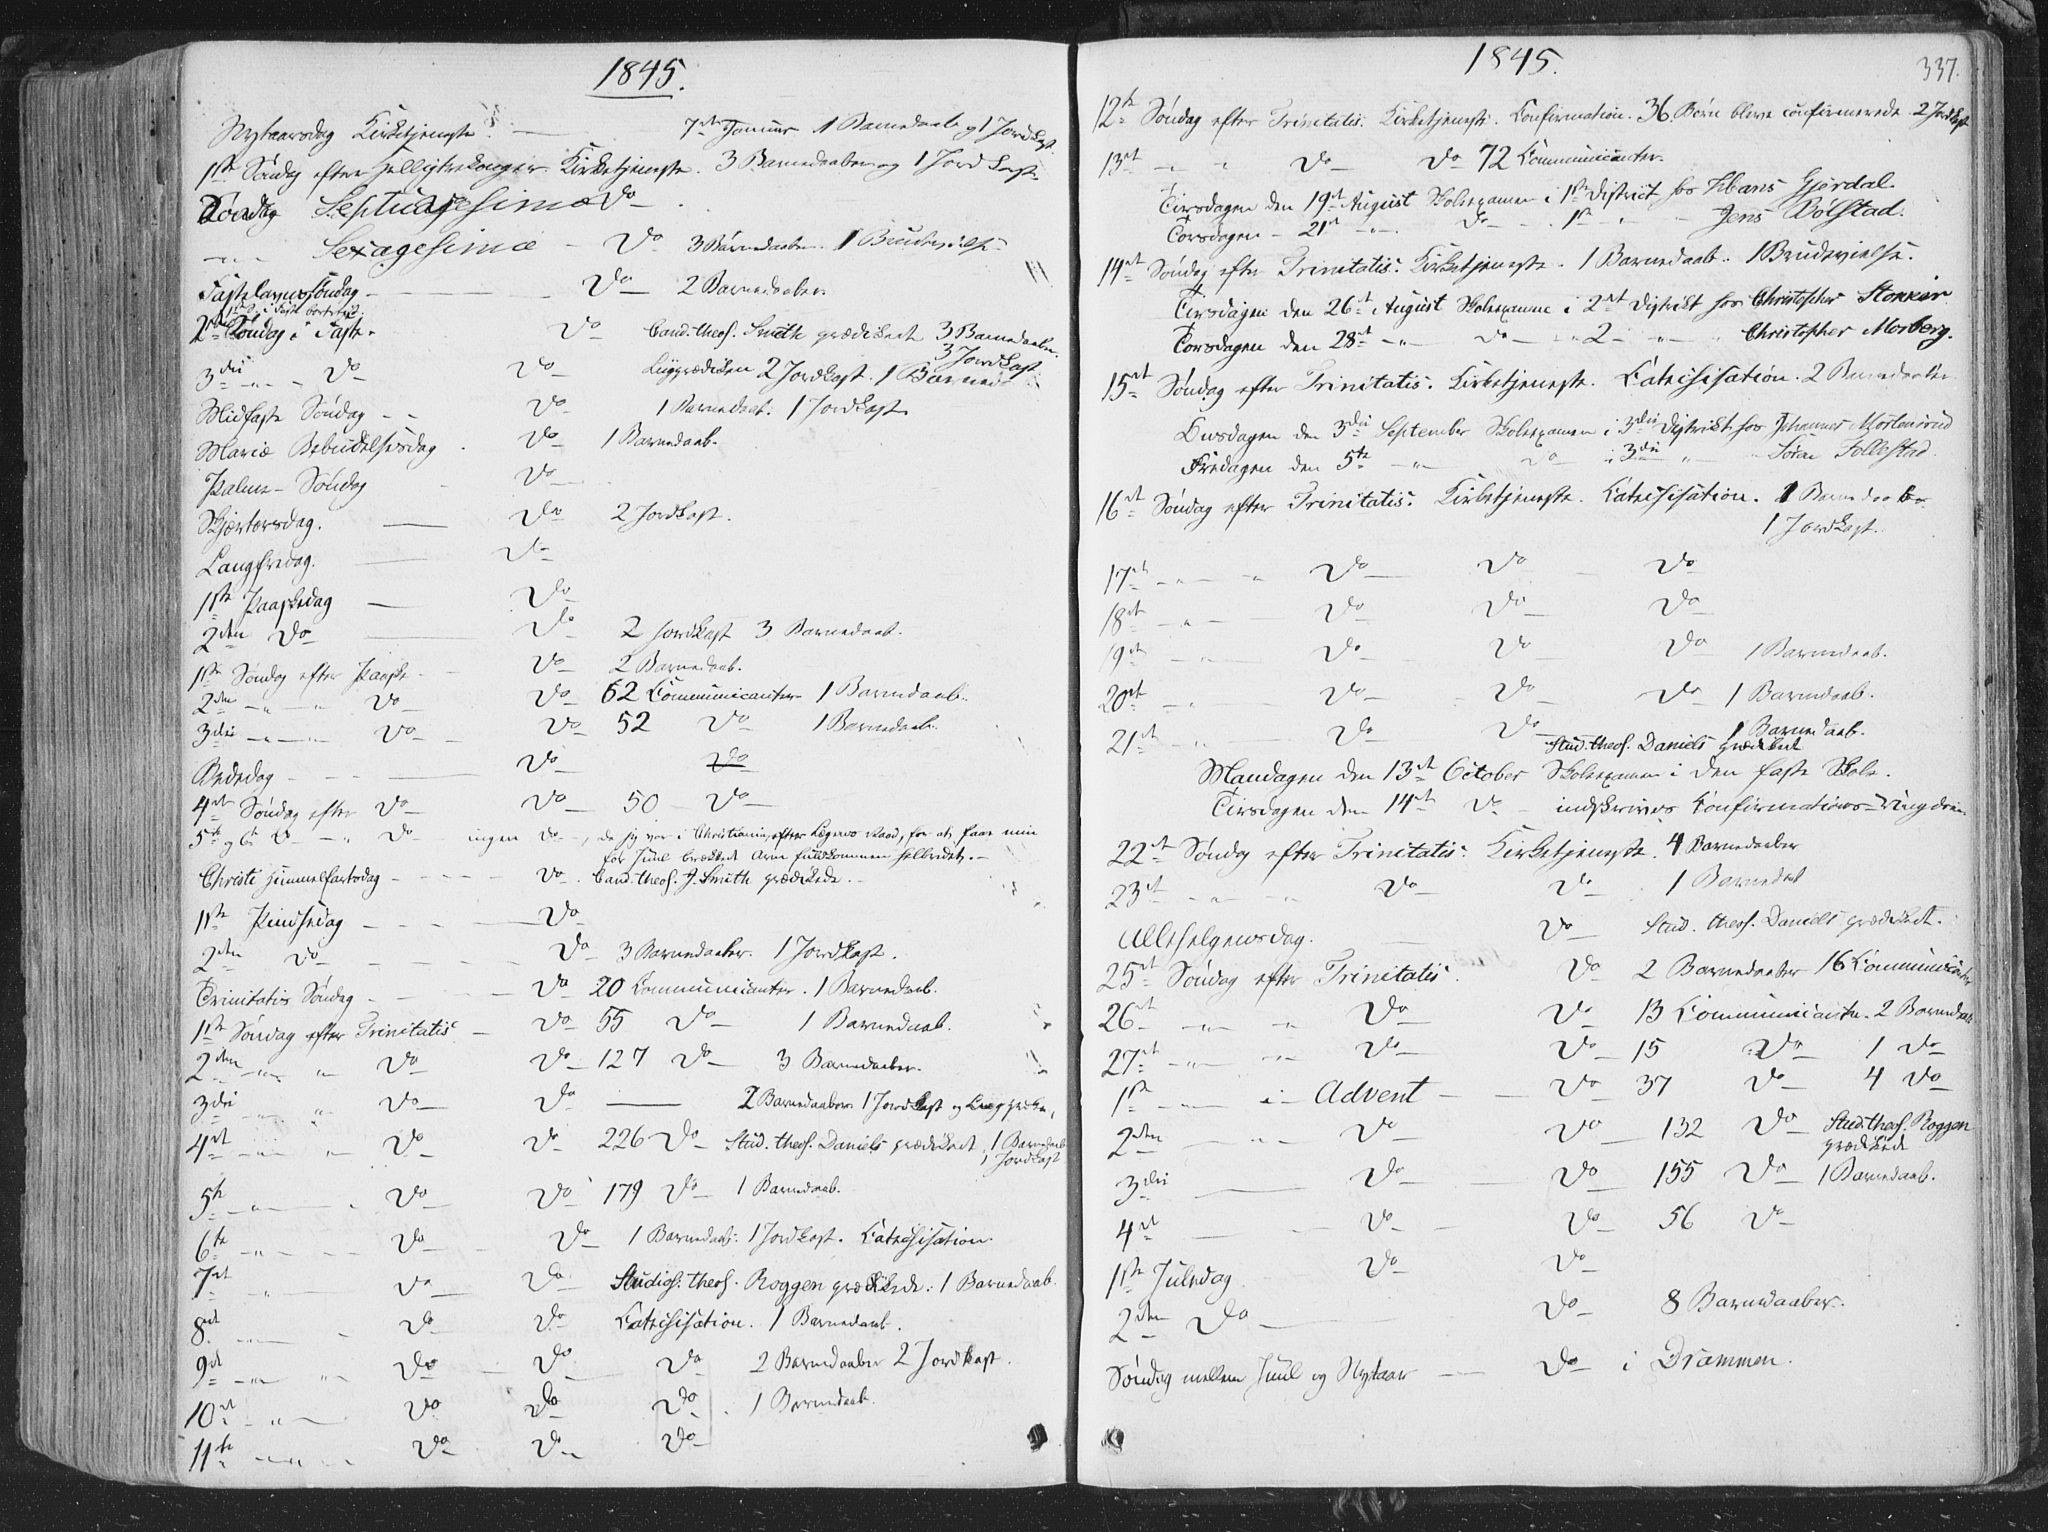 1845.
Nytaarsdag Kirketjeneste. — 7de Januar 1 Barnedaab og 1 Jordkast
1ste Søndag efter Helligtrekonger. Kirketjeneste. 3 Barnedaaber og 1 Jordkast
Søndag Septuagesima Do
— Sexagesimæ — Do 3 Barnedaaber. 1 Brudevielse
Fastelavnssøndag — Do 2 Barnedaaber
2den Søndag i Faste. Do Cand. theol. Smith prædikede 3 Barnedaaber
3 Jordkast
3die — Do Do Liigprædiken 2 Jordkast. 1 Barned
Midfaste Søndag — Do 1 Barnedaab. 1 Jordkast
Mariæ Bebudelsesdag. Do 1 Barnedaab.
Palme-Søndag - Do
Skjærtorsdag. — Do 2 Jordkast.
Langfredag. — Do
1ste Paaskedag — Do
2den Do — Do 2 Jordkast 3 Barnedaab.
1ste Søndag efter Paaske — Do 2 Barnedaab.
2den — " — " Do Do 62 Communicanter 1 Barnedaab.
3die — " — " Do Do 52 Do 1 Barnedaab.
Bededag — Do Do
4de Søndag efter Do Do 50 — Do
5te og 6te D — " Do ingen Do —, da jeg var i Christiania, efter Lægens Raad, for at faae min
før Juul brækkede Arm fuldkommen helbredet. —
Christi Himmelfartsdag — Do. Cand. theol. J. Smith prædikede. —
1ste Pindsedag — Do
2den Do — Do 3 Barnedaaber. 1 Jordkast.
Trinitatis Søndag — Do 20 Communicanter. 1 Barnedaab.
1ste Søndag efter Trinitatis — Do 55 Do 1 Barnedaab.
2den — " — " Do Do 127 Do 3 Barnedaaber.
3die — " " Do Do — 2 Barnedaaber 1 Jordkast og Liigprædiken,
4de — " " Do Do 226 Do Stud. theol. Daniels prædikede. 1 Barnedaab
1 Jordkast
5te — " — " Do Do 179 Do 1 Barnedaab.
6te — " — Do Do 1 Barnedaab. 1 Jordkast. Catechisation.
7de — " Do Do Studios. theol. Roggen prædikede. 1 Barnedaab.
8de — Do Do Catechisation. 1 Barnedaab.
9de — " " Do Do Do 2 Barnedaaber 2 Jordkast.
10de — " Do Do Do. 1 Barnedaab.
11te — " — " Do Do Do
1845.
337.
12te Søndag efter Trinitatis. Kirketjeneste. Confirmation. 36 Børn bleve confirmerede 2 Jordkast
13de " " Do Do 72 Communicanter.
Tirsdagen den 19de August Skoleexamen i 1ste District hos Hans Gjerdal.
Torsdagen — 21de — " Do 1ste " — Jens Bølstad.
14de Søndag efter Trinitatis. Kirketjeneste. 1 Barnedaab. 1 Brudevielse.
Tirsdagen den 26de August Skoleexamen i 2det District hos Christopher Stokker
Torsdagen den 28de — " Do — " 2 — " Christopher Morberg.
15de Søndag efter Trinitatis. Kirketjeneste. Catechisation. 2 Barnedaaber
Onsdagen den 3die September Skoleexamen i 3die District hos Johannes Mortensrud
Fredagen den 5te — " Do i 3die " Søren Follestad.
16de Søndag efter Trinitatis. Kirketjeneste. Catechisation. 1 Barnedaab
1 Jordkast.
17de — " " Do Do Do
18de — " — Do Do Do
19de — " Do Do Do 1 Barnedaab.
20de — " Do Do Do 1 Barnedaab.
21de — " Do Do 1 Barnedaab.
Stud. theol. Daniels prædikede
Mandagen den 13de October Skoleexamen i den faste Skole.
Tirsdagen den 14de Do — indskrives Confirmations-Ungdom.
22de Søndag efter Trinitatis. Kirketjeneste. 4 Barnedaaber
23de — " — " Do Do 1 Barnedaab
Allehelgensdag. Do Stud. theol. Daniels prædikede.
25de Søndag efter Trinitatis. Do 2 Barnedaaber 16 Communicanter
26de — " — " Do Do 13 Communicanter. 2 Barnedaab
27de — " — " Do Do 15 Do 1 Do
1ste — " — i Advent — Do 37 Do 4 Do
2den — " — Do Do 132 Do Stud. theol. Roggen
prædikede
3die — Do Do 155 Do 1 Barnedaab.
4de — Do Do 56 Do
1ste Juledag Do Do
2den Do — Do 8 Barnedaaber.
Søndag mellem Juul og Nytaar — Do i Drammen.